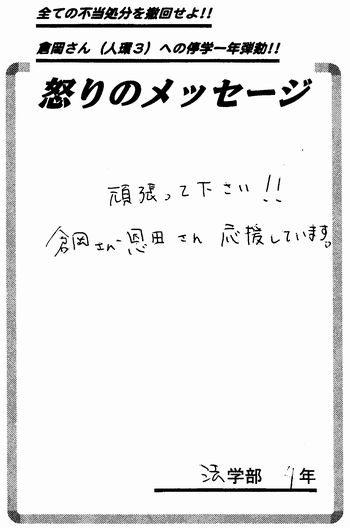 全ての不当処分を撤回せよ!!
倉岡さん（人環３）への停学一年弾劾!!
怒りのメッセージ
頑張って下さい!!
倉岡さん・恩田さん 応援しています。
法学部 年